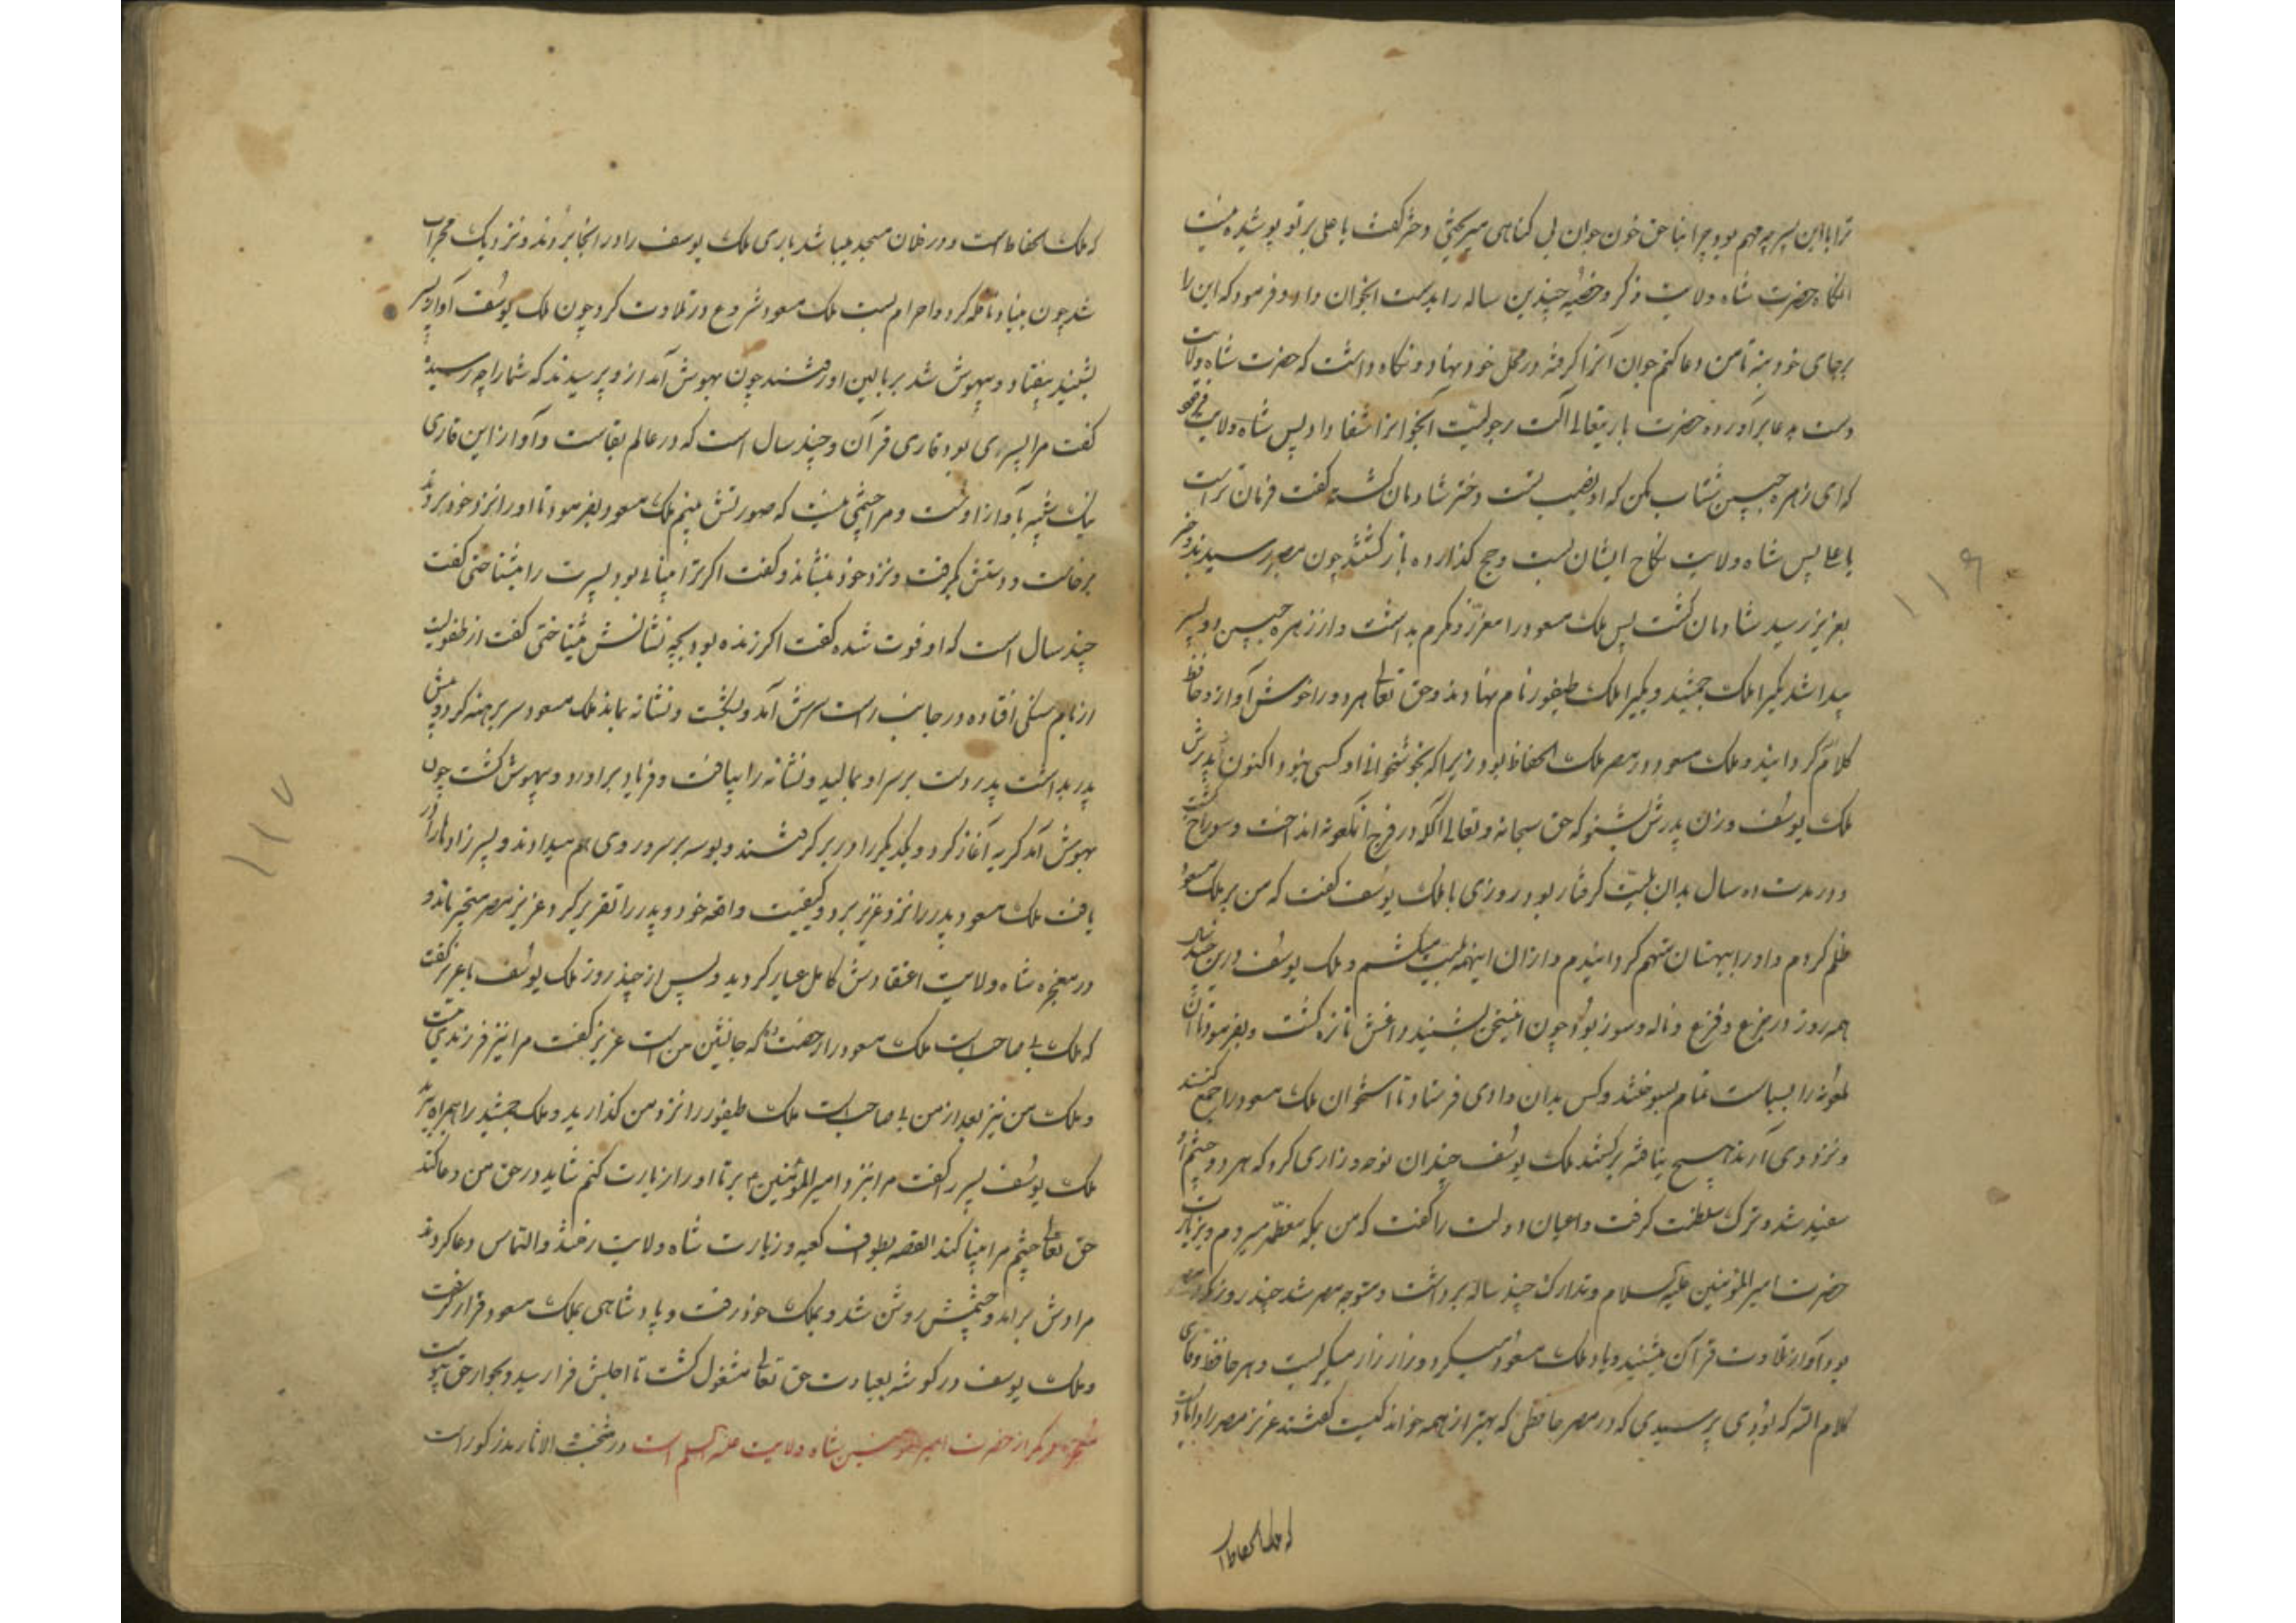 ترا با این پسر چه مهم بود چرا بناحق خون جوان بی کناهی میریختی دختر کفت یا علی بر تو پوشیده نیست
انکاه حضرت شاه ولایت ذکر و خصیه چندین ساله را بدست انجوان داد و فرمود که این را
برجای خود بنه تا من دعا کنم جوان انرا کرفته در محل خود نهاد و نکاه داشت که حضرت شاه ولایت
دست بدعا برآورده حضرت باریتعالی آلت رجولیت آنجوانرا شفا داد پس شاه ولایت
که ای زهره جبین شتاب مکن که او نصیب تست دختر شادمان کشته کفت فرمان تراست
یا علی پس شاه ولایت نکاح ایشان بست و حج کذارده باز کشتند چون بمصر رسیدند و خبر
بعزیز رسید شادمان کشت پس ملک مسعود را معزز و مکرم بداشت و از زهره جبین دو پسر
پیدا شد یکیرا ملک جمشید و یکیرا ملک طیفور نام نهادند و حق تعالی هر دو را خوش آواز و حافظ
کلام کردانید و ملک مسعود در مصر ملک الحفاظ بود زیرا که بخوشخوانی او کسی نبود اکنون از پدرش
ملک یوسف و زن پدرش بشنو که حق سبحانه و تعالی آکله در فرج آنملعونه انداخت و سوراخ کشت
و در مدت ده سال بدان بلیت کرفتار بود روزی با ملک یوسف کفت که من بر ملک مسعود
ظلم کردم و او را ببهتان متهم کردانیدم و ازان اینهمه بلیت میکشم و ملک یوسف درین چند سال
همه روز در جزع و فزع و ناله و سوز بود چون اینسخن بشنید داغش تازه کشت و بفرمود تا آن
ملعونه را بسیاست تمام بسوختند و کس بدان وادی فرستاد تا استخوان ملک مسعود را جمع کنند
و نزد وی آرند هیچ نیافته برکشتند ملک یوسف چندان نوحه و زاری کرد که هر دو چشم او
سفید شد و ترک سلطنت کرفت و اعیان دولت را کفت که من بمکه معظمه میروم و بزیارت
حضرت امیر المؤمنین علیه السلام و تدارک چند ساله برداشت و متوجه مصر شد چند روز که در مصر
بود آواز تلاوت قرآن میشنید و یاد ملک مسعود میکرد و زار زار میکریست و هر حافظ و قاری
کلام الله که بودی پرسیدی که در مصر حافظی که بهتر از همه خواند کیست کفتند عزیز مصر را دامادیست
که ملک الحفاظ
۱۱۶
که ملک الحفاظ است و در فلان مسجد میباشد باری ملک یوسف را در انجا بردند و نزدیک محراب
شد چون بنیاد نافله کرد و احرام بست ملک مسعود شروع در تلاوت کرد چون ملک یوسف آواز پسر
بشنید بیفتاد و بیهوش شد بر بالین او رفتند چون بهوش آمد از و پرسیدند که شما را چه رسید
کفت مرا پسری بود قاری قرآن و چند سال است که در عالم بقاست و آواز این قاری
نیک شبیه بآواز اوست و مرا چشمی نیست که صورتش بینم ملک مسعود بفرمود تا او را نزد خود بردند
برخاست و دستش بگرفت و نزد خود بنشاند و کفت اکر ترا بینائی بود پسرت را میشناختی کفت
چند سال است که او فوت شده کفت اکر زنده بود بچه نشانش میشناختی کفت از طفولیت
از بام سنکی افتاده در جانب راست سرش آمد و بشکست و نشانه بماند ملک مسعود سر برهنه کرد و پیش
پدر بداشت پدر دست بر سر او بمالید و نشانه را بیافت و فریاد برآورد و بیهوش کشت چون
بهوش آمد کریه آغاز کرد و یکدیکر را در بر کرفتند و بوسه بر سر و روی هم میدادند و پسرزادها را
یافت ملک مسعود پدر را نزد عزیز برد و کیفیت واقعه خود و پدر را تقریر کرد عزیز مصر متحیر ماند و
در معجزه شاه ولایت اعتقادش کامل عیار کردید و پس از چند روز ملک یوسف با عزیز کفت
که ملک بی صاحب است ملک مسعود را رخصت ده که جانشین من است عزیز کفت مرا نیز فرزندی نیست
و ملک من نیز بعد از من بی صاحب است ملک طیفور را نزد من کذارید و ملک جمشید را همراه ببرید
ملک یوسف پسر را کفت مرا بنزد امیر المؤمنین بر تا او را زیارت کنم شاید در حق من دعا کند
حق تعالی چشم مرا بینا کند القصه بطواف کعبه و زیارت شاه ولایت رفتند و التماس دعا کردند
مرادش برآمد و چشمش روشن شد و بملک خود رفت و پادشاهی بملک مسعود قرار کرفت
و ملک یوسف در کوشه بعبادت حق تعالی مشغول کشت تا اجلش فرا رسید و بجوار حق پیوست
معجزه دیکر از حضرت امیر المؤمنین شاه ولایت علیه السلم است در منتخب الاثار مذکور است
۱۱۷